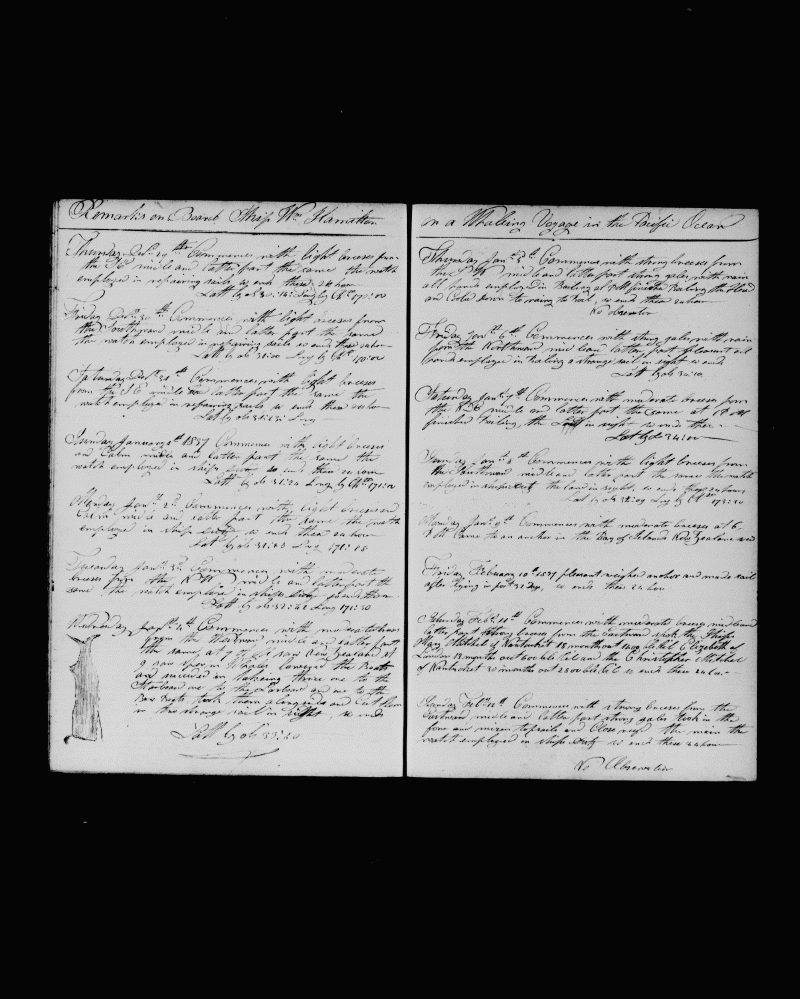 Remarks on Board Ship Wm Hamilton
Thursday Decr 29th Commences with light breezes from
the SE midle and latter part the same the watch
employed in repairing sails so ends these 24 hours
Latt by ob 30:42 Long by Chr 170:10
Friday Decr 30th Commences with light breezes from
the Southward midle and latter part the same
the watch employed in repairing sails so ends these 24 hours
Latt by ob 31:00 Long by Chr
Saturday Decr 31st Commences with light breezes
from the SE midle and latter part the same the
watch employed in repairing sails so ends these 24 hours
Latt by ob Long
Sunday January 1st 1837 Commences with light breezes
and Calm midle and latter part the same the
watch employed in ships duty so ends these 24 hours
Latt by ob 31:24 Long by Chr 171:02
Monday Janr 2d Commences with light breezes and
Calm midle and latter part the same the watch
employed in ships duty so ends these 24 hours
Latt by ob Long 171:18
Tuesday Janr 3d Commences with moderate
breezes from the NW midle and latter part the
same the watch employed in ships duty so ends these
Latt by ob 32:42 Long 171:30
Wednesday Janr 4th Commences with moderate breezes
from the Westward midle and latter part
the same at 7 saw New Zealand at
9 saw sperm Whales lowered the Boats
and succeed in taking three one to the
Starboard one to the Larboard and one to the
Bow boats took them along side and cut them
in two strange sail in sight so ends
Latt by ob 33:40
on a Whaling Voyage in the Pacific Ocean
Thursday Janr 5th Commences with strong breezes from
the NW midle and latter part strong gales with rain
all hands employed in Boiling at PM finished Boiling the Head
and Coled down to raining to hail so ends these 24 hours
No Observation
Friday Janr 6th Commences with strong gales with rain
from the Northward midle and latter part pleasant all
hands employed in boiling a strange sail in sight so ends
Latt by ob
Saturday Janr 7th Commences with moderate breezes from
the midle and latter part the same at PM
finished boiling the Land in sight so ends these
Latt by ob 34:40
Sunday Janr 8th Commences with light breezes from
the Southward midle and latter part the same the watch
employed in ships duty the land in sight so ends these 24 hours
Latt by ob Long by Chr
Monday Janr 9th Commences with moderate breezes at 6
PM Came to an anchor in the Bay of Islands New Zealand
Friday February 10th 1837 pleasant weighed anchor and made sail
after lying in port 31 days so ends these 24 hours
Saturday Febr 11th Commences with moderate breezes midle and
latter part strong breezes from the Eastward spoke the Ships
Mary Mitchel of Nantucket 18 months out 1400 bbls Oil Elizabeth of
London 13 months out 600 bbls Oil and the Christopher Mitchel
of Nantucket 30 months out 2300 bbls Oil so ends these 24 hours
Sunday Febr 12th Commences with strong breezes from the
Eastward midle and latter part strong gales took in the
fore and mizen topsails and Close reefd the main the
watch employed in ships duty so ends these 24 hours
No Observation